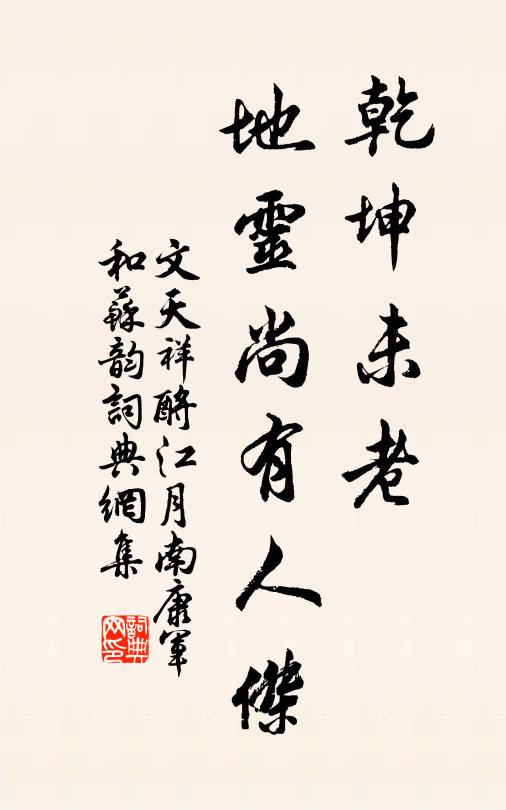 乾坤未老
地靈尚有人傑
文天祥酹江月南康軍
和蘇韵詞典網集
詞典网印